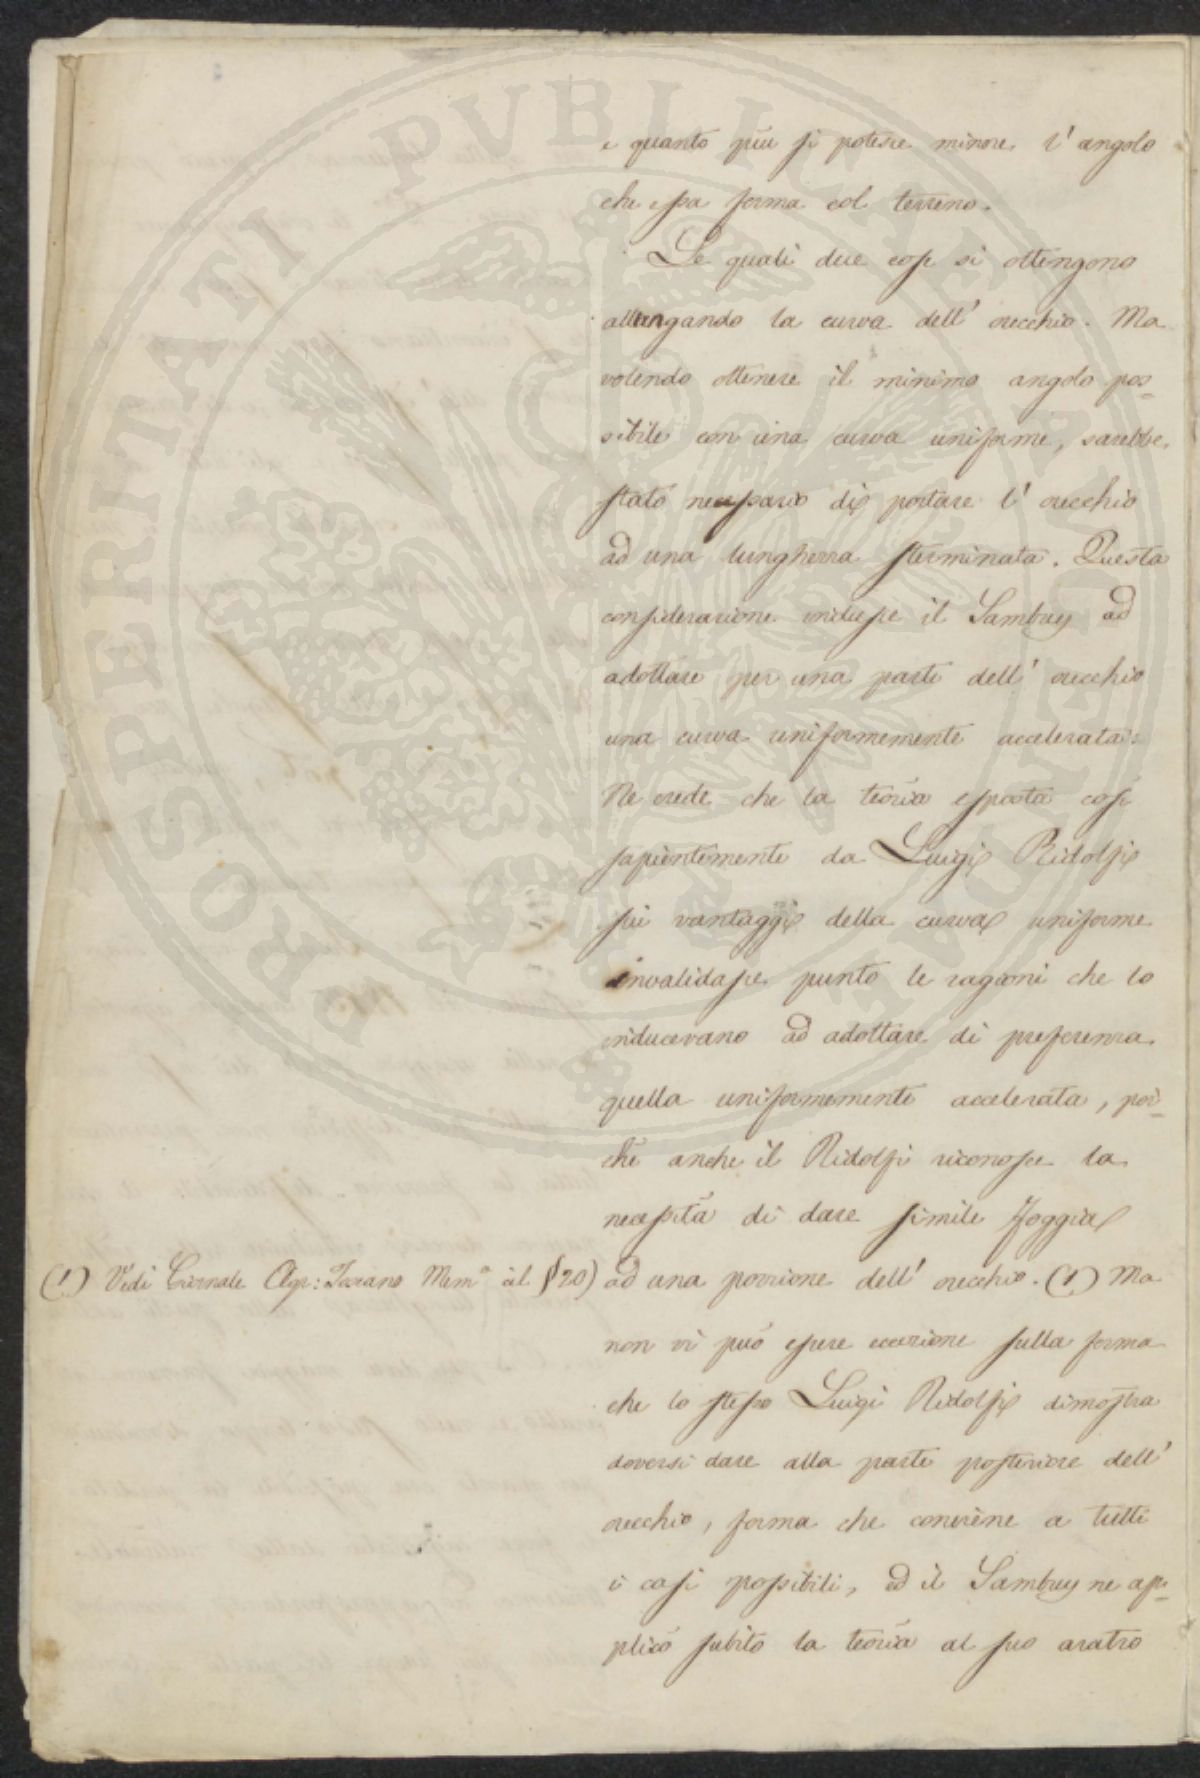 e quanto più si potesse minore l'angolo
che essa forma col terreno.
Le quali due cose si ottengono
allungando la curva dell'orecchio. Ma
volendo ottenere il minimo angolo pos=
sibile con una curva uniforme, sarebbe
stato necessario di portare l'orecchio
ad una lunghezza sterminata. Questa
considerazione indusse il Sambuy ad
adottare per una parte dell'orecchio
una curva uniformemente accelerata.
Ne crede che la teoria esposta così
sapientemente da Luigi Ridolfi
sui vantaggi della curva uniforme
invalidasse punto le ragioni che lo
inducevano ad adottare di preferenza
quella uniformemente accelerata, poi=
chè anche il Ridolfi riconosce la
necessità di dare simile foggia
(1) Vedi Giornale Agr: Toscano Mem.ª al §20) ad una porzione dell'orecchio. (1) Ma
non vi può essere eccezione sulla forma
che lo stesso Luigi Ridolfi dimostra
doversi dare alla parte posteriore dell'
orecchio, forma che conviene a tutti
i casi possibili, ed il Sambuy ne ap=
plicò subito la teoria al suo aratro
PROSPERITATI PUBLICAE AUGENDAE